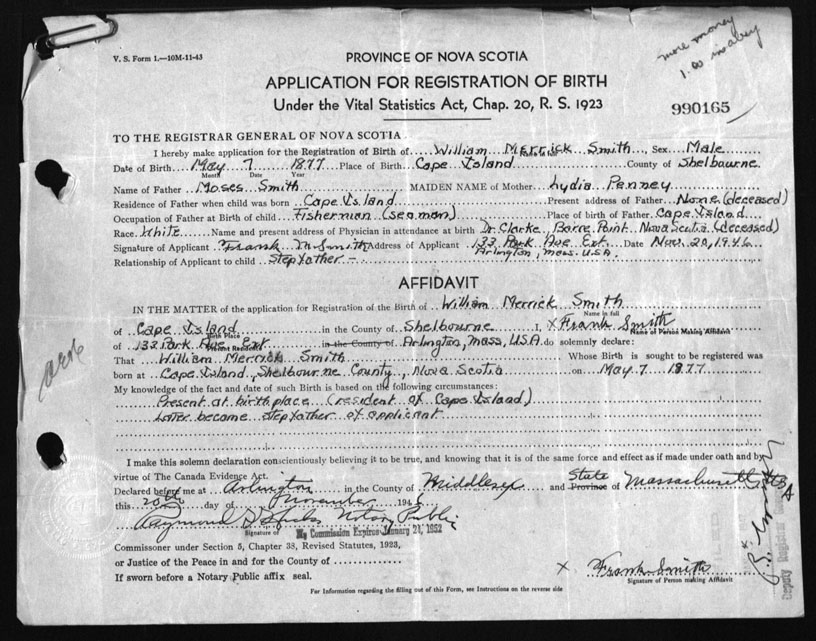 V. S. Form 1.—10M-11-43
more money
PROVINCE OF NOVA SCOTIA
APPLICATION FOR REGISTRATION OF BIRTH
Under the Vital Statistics Act, Chap. 20, R. S. 1923
990165
TO THE REGISTRAR GENERAL OF NOVA SCOTIA
I hereby make application for the Registration of Birth of William Merrick Smith, Sex Male
Name in full
Date of Birth May 7 1877 Place of Birth Cape Island County of Shelbourne
Month Date Year
Name of Father Moses Smith MAIDEN NAME of Mother Lydia Penney
Residence of Father when child was born Cape Island Present address of Father None (deceased)
Occupation of Father at Birth of child Fisherman (seaman) Place of Birth of Father Cape Island
Race White Name and present address of Physician in attendance at birth Dr. Clarke, Barre Point Nova Scotia (deceased)
Signature of Applicant Frank M Smith Address of Applicant 133 Park Ave Ext. Date Nov. 20, 1946
Relationship of Applicant to child Stepfather - Arlington, Mass. U.S.A.
AFFIDAVIT
IN THE MATTER of the application for Registration of the Birth of William Merrick Smith
Name in full
of Cape Island in the County of Shelbourne I, x Frank Smith
Birth Place Name of Person Making Affidavit
of 133 Park Ave Ext in the County of Arlington, Mass, U.S.A. do solemnly declare:
Present Residence
That William Merrick Smith Whose Birth is sought to be registered was
born at Cape Island, Shelbourne County, Nova Scotia on May 7 1877
My knowledge of the fact and date of such Birth is based on the following circumstances:
Present at birthplace (resident of Cape Island)
Later became stepfather of applicant
I make this solemn declaration conscientiously believing it to be true, and knowing that it is of the same force and effect as if made under oath and by
virtue of The Canada Evidence Act.
Declared before me at Arlington in the County of Middlesex and State Province of Massachusetts
this 20th day of November 1946
Raymond Notary Public
Signature of My Commission Expires January 24, 1952
Commissioner under Section 5, Chapter 38, Revised Statutes, 1923,
or Justice of the Peace in and for the County of
If sworn before a Notary Public affix seal.
x Frank Smith
Signature of Person making Affidavit
For Information regarding the filling out of this Form, see Instructions on the reverse side
Deputy Registrar